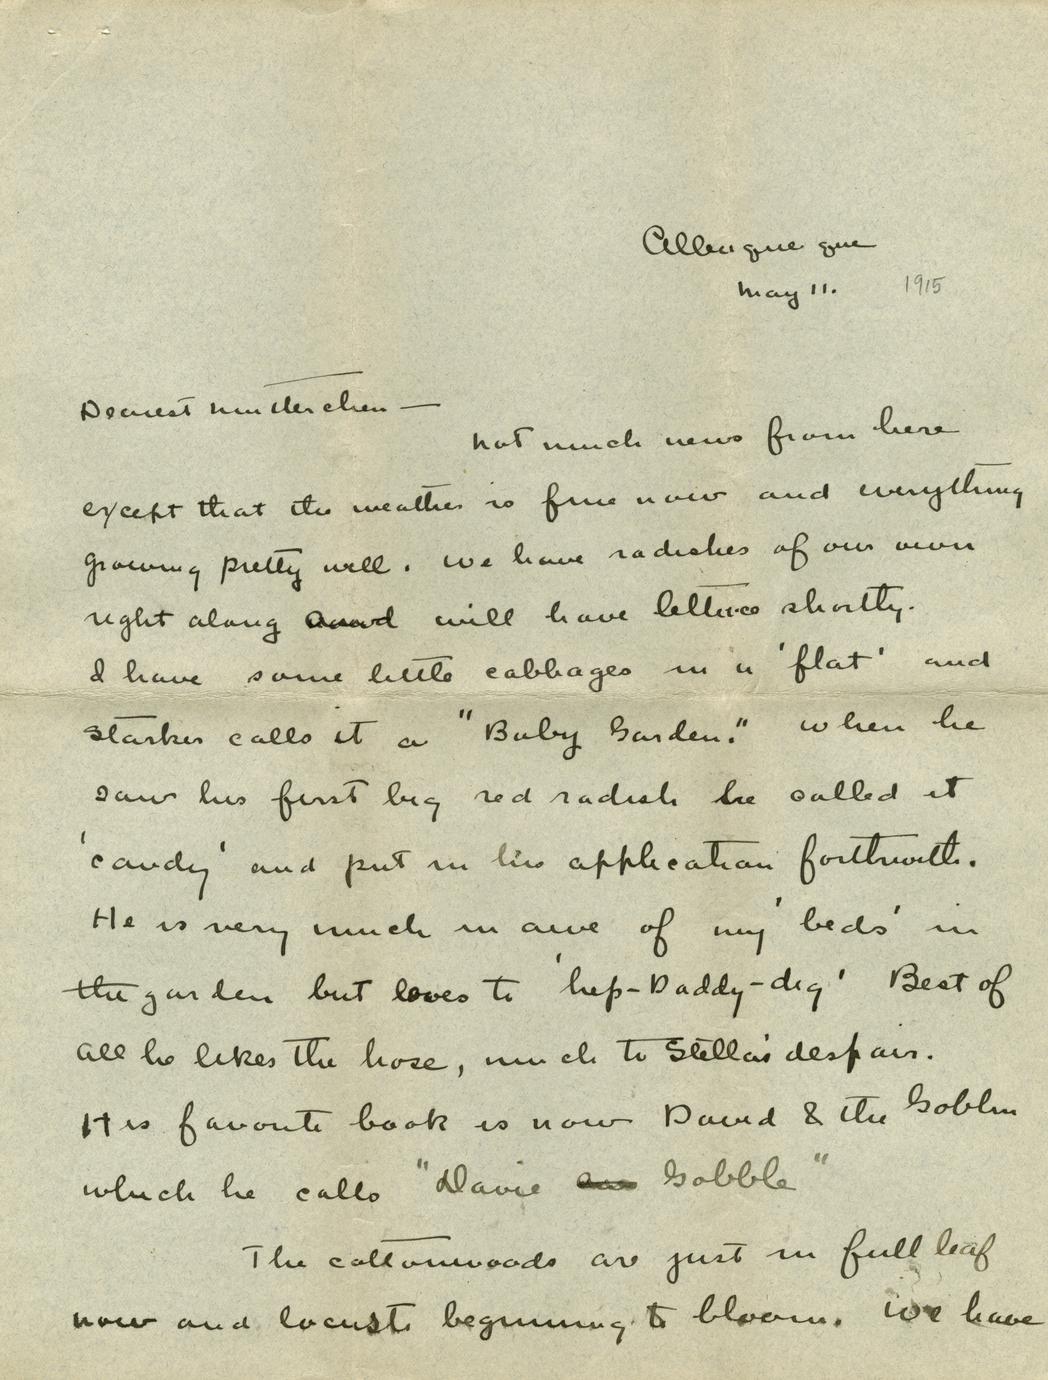 Albuquerque
May 11. 1915
Dearest Mutterchen —
Not much news from here
except that the weather is fine now and everything
growing pretty well. We have radishes of our own
right along and will have lettuce shortly.
I have some little cabbages in a 'flat' and
Starker calls it a "Baby Garden." When he
saw his first big red radish he called it
'candy' and put in his application forthwith.
He is very much in awe of my 'beds' in
the garden but loves to 'hep-Daddy-dig' Best of
all he likes the hose, much to Stella's despair.
His favorite book is now David & the Goblin
which he calls "Davie Gobble"
The cottonwoods are just in full leaf
now and locusts beginning to bloom. We have